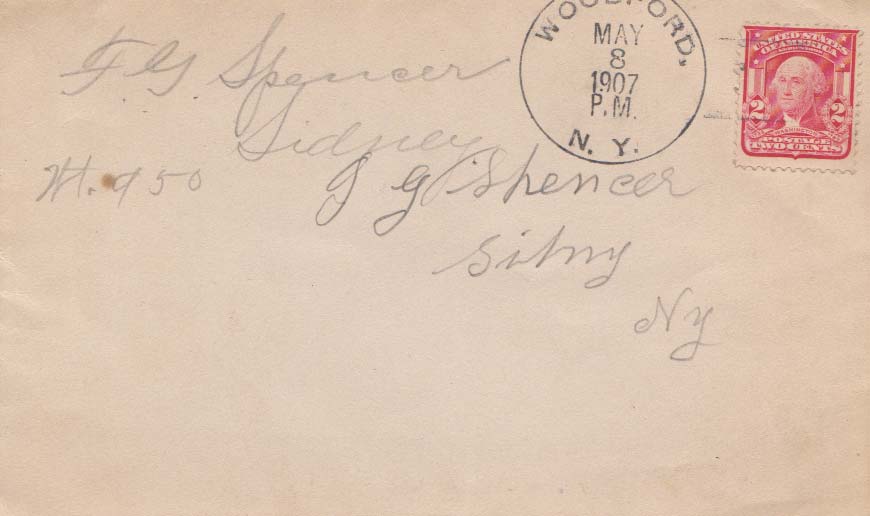 WOODFORD,
MAY
8
1907
P.M.
N. Y.
UNITED STATES
OF AMERICA
2 2
WASHINGTON
POSTAGE
TWO CENTS
F G Spencer
Sidney
Wt. 950
G Spencer
Sidny
Ny